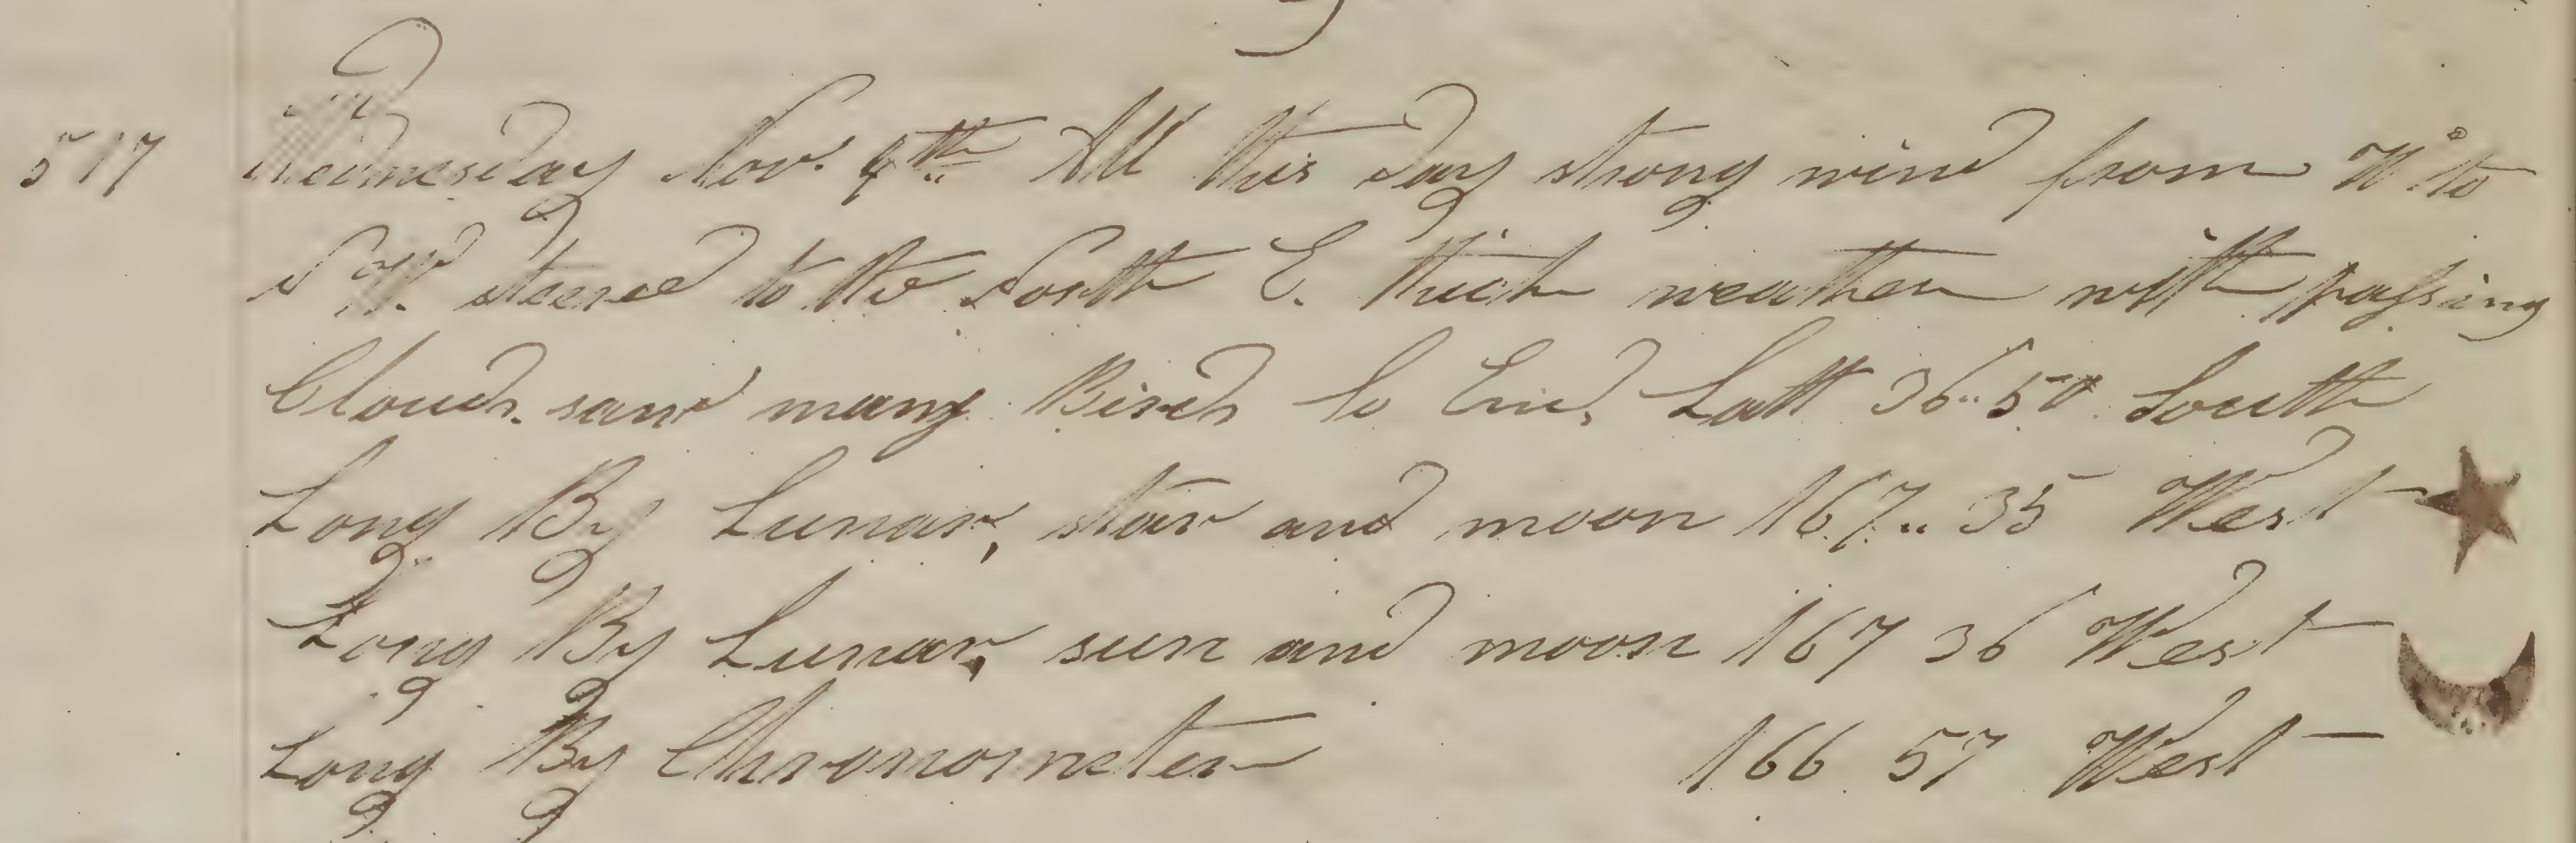 517 Wednesday Nov. 4th All this day strong wind from W. to
S W. steered to the South E. thick weather with passing
Clouds. saw many Birds So End, Latt 36..50 South
Long By Lunar, star and moon 167..35 West
Long By Lunar, sun and moon 167 36 West
Long By Chronometer 166 57 West